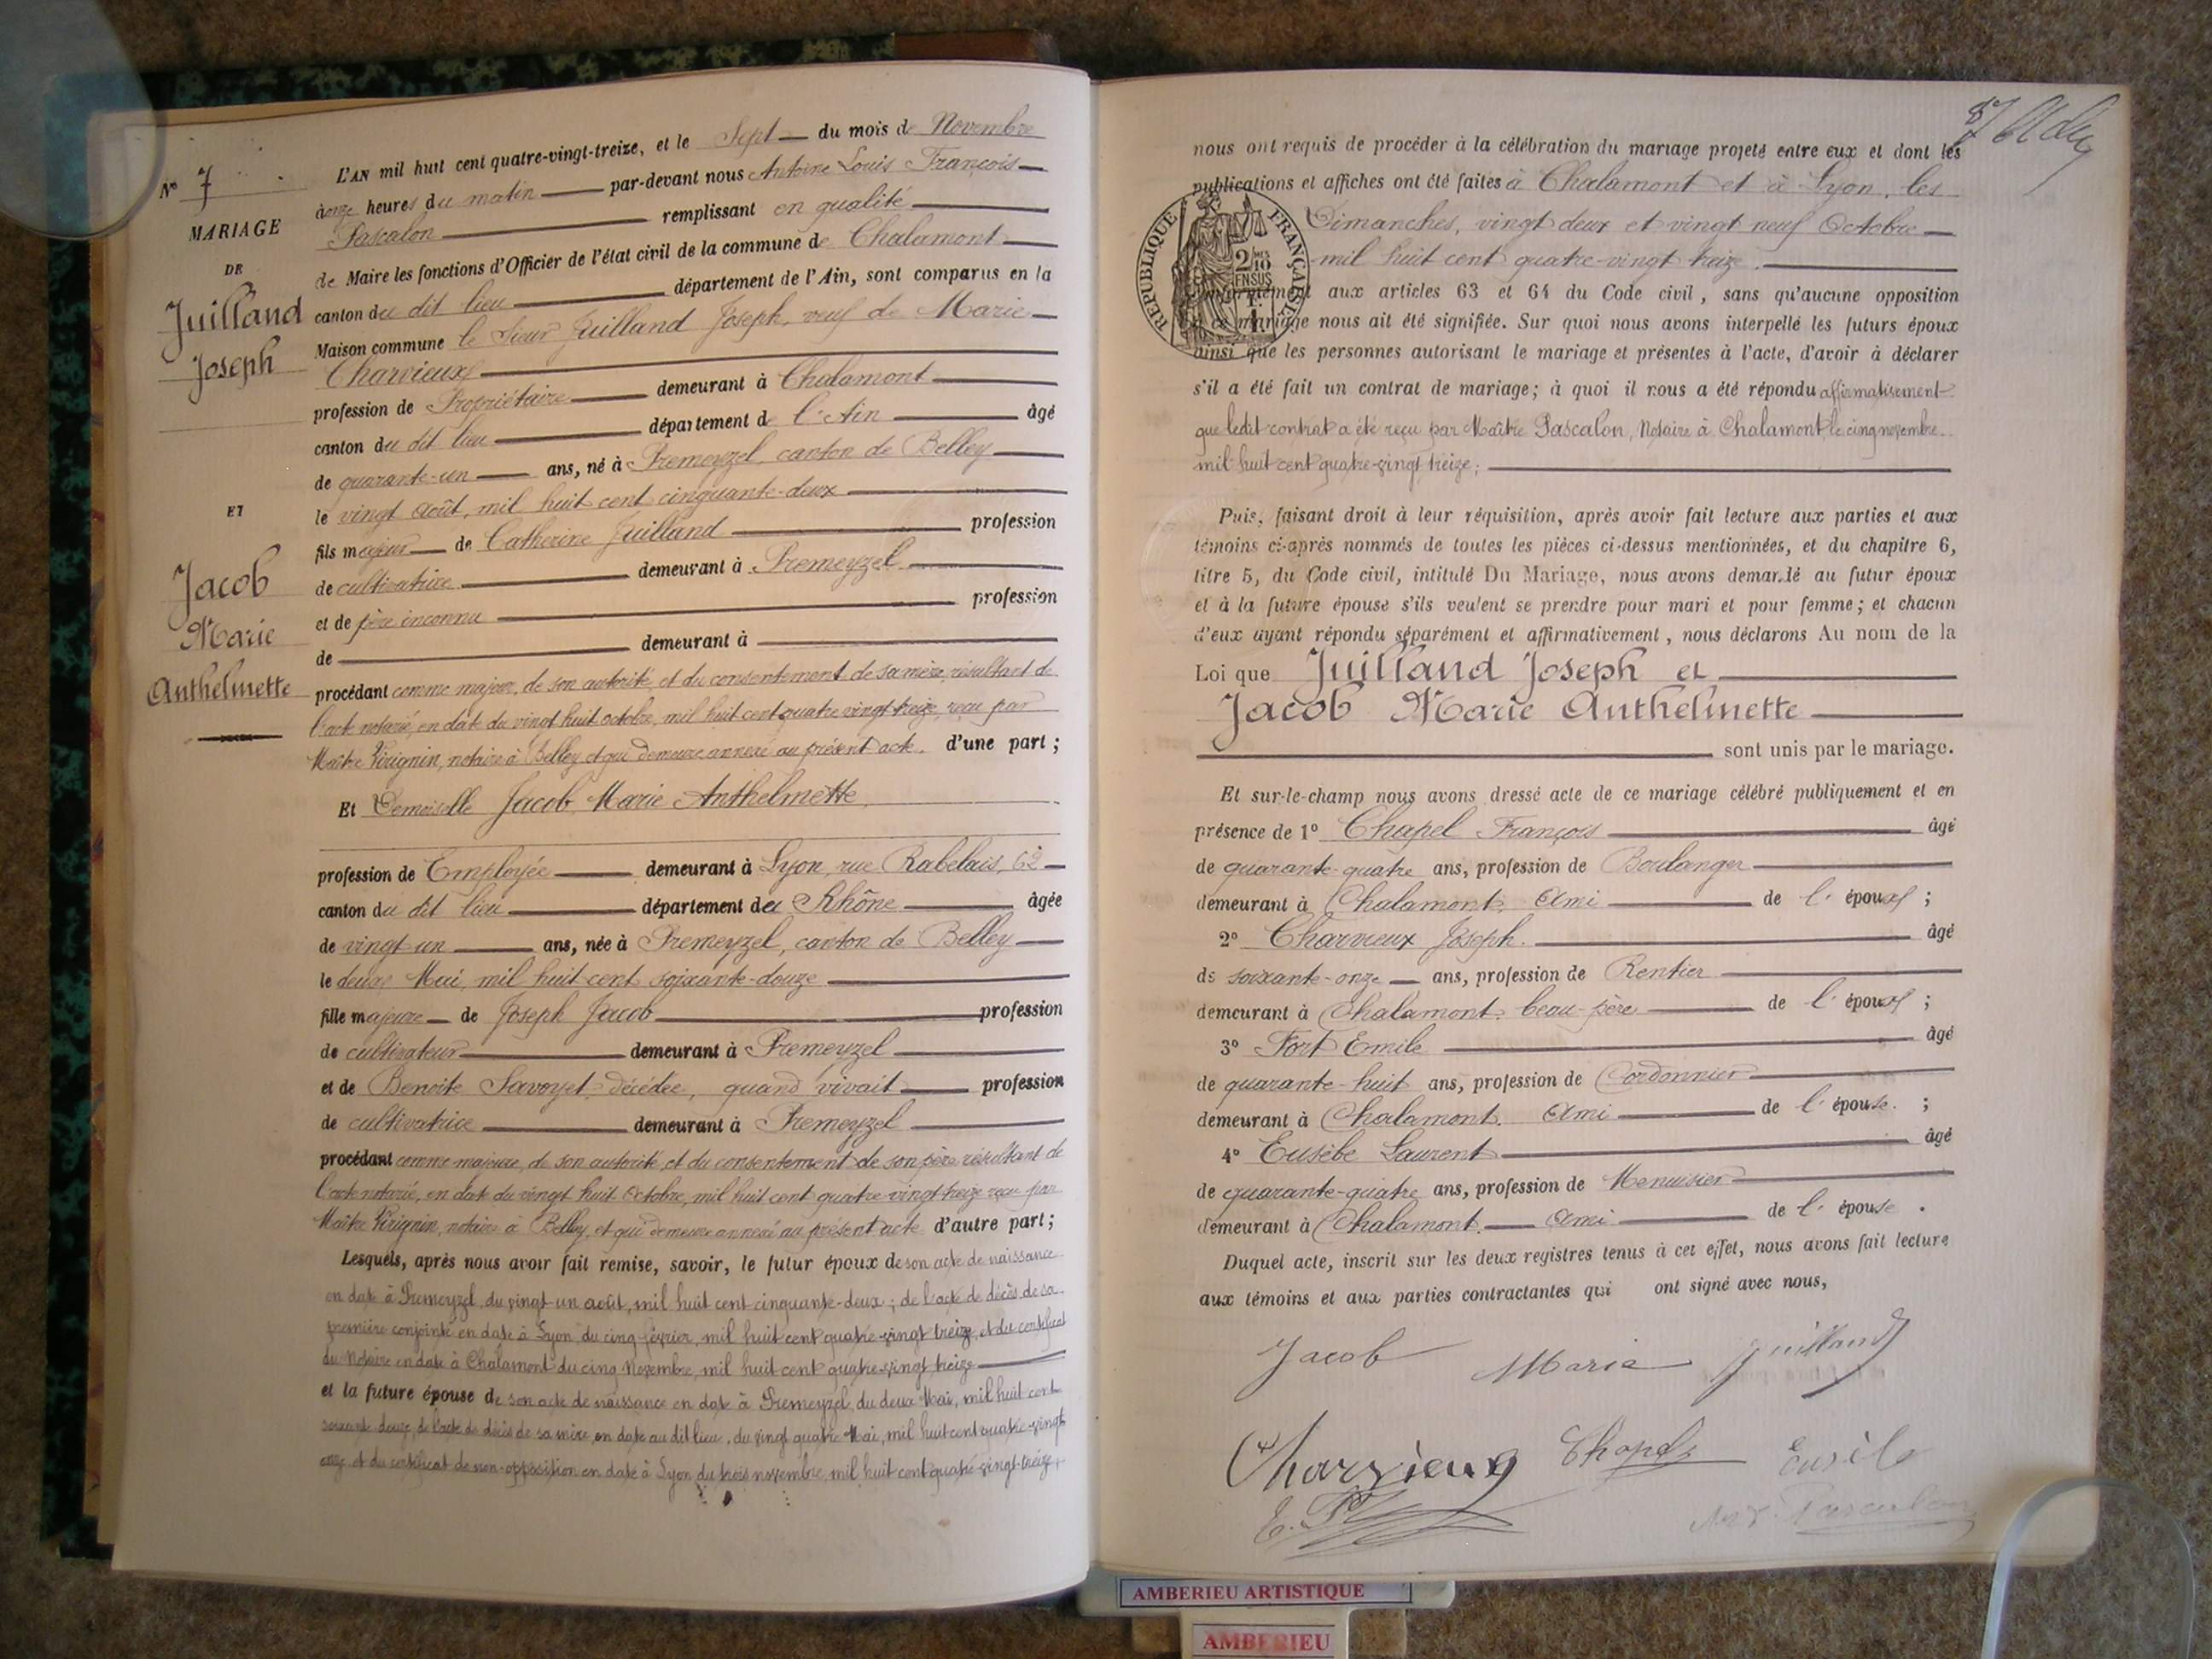 N° 7
MARIAGE
DE
Juilland
Joseph
ET
Jacob
Marie
Anthelmette
L'AN mil huit cent quatre-vingt-treize, et le Sept du mois de Novembre
à onze heures du matin par-devant nous Antoine Louis François
Pascalon remplissant en qualité
de Maire les fonctions d'Officier de l'état civil de la commune de Chalamont
canton du dit lieu département de l'Ain, sont comparus en la
Maison commune le Sieur Juilland Joseph, veuf de Marie
Charvieux
profession de Propriétaire demeurant à Chalamont
canton du dit lieu département de l'Ain âgé
de quarante-un ans, né à Premeyzel, canton de Belley
le vingt août, mil huit cent cinquante-deux
fils majeur de Catherine Juilland profession
de cultivatrice demeurant à Premeyzel
et de père inconnu profession
de demeurant à
procédant comme majeur, de son autorité, et du consentement de sa mère, résultant de
l'acte notarié, en date du vingt huit octobre, mil huit cent quatre vingt-treize, reçu par
Maître Virignin, notaire à Belley et qui demeure annexé au présent acte. d'une part ;
Et Demoiselle Jacob, Marie Anthelmette
profession de Employée demeurant à Lyon, rue Rabelais, 62
canton du dit lieu département du Rhône âgée
de vingt un ans, née à Premeyzel, canton de Belley
le deux Mai, mil huit cent soixante-douze
fille majeure de Joseph Jacob profession
de cultivateur demeurant à Premeyzel
et de Benoite Savoyet, décédée, quand vivait profession
de cultivatrice demeurant à Premeyzel
procédant comme majeure, de son autorité, et du consentement de son père, résultant de
l'acte notarié, en date du vingt huit Octobre, mil huit cent quatre-vingt-treize reçu par
Maître Virignin, notaire à Belley, et qui demeure annexé au présent acte d'autre part ;
Lesquels, après nous avoir fait remise, savoir, le futur époux de son acte de naissance
en date à Premeyzel, du vingt un août, mil huit cent cinquante-deux ; de l'acte de décès de sa
première conjointe en date à Lyon du cinq février, mil huit cent quatre-vingt treize, et du certificat
du Notaire en date à Chalamont du cinq Novembre, mil huit cent quatre-vingt treize
et la future épouse de son acte de naissance en date à Premeyzel, du deux Mai, mil huit cent
soixante-douze, de l'acte de décès de sa mère, en date au dit lieu, du vingt quatre Mai, mil huit cent quatre-vingt
onze et du certificat de non-opposition en date à Lyon du trois novembre, mil huit cent quatre-vingt-treize
nous ont requis de procéder à la célébration du mariage projeté entre eux et dont les
publications et affiches ont été faites à Chalamont et à Lyon, les
Dimanches, vingt deux et vingt neuf Octobre
mil huit cent quatre-vingt treize.
RÉPUBLIQUE FRANÇAISE
2/10 EN SUS
Conformément aux articles 63 et 64 du Code civil, sans qu'aucune opposition
à ce mariage nous ait été signifiée. Sur quoi nous avons interpellé les futurs époux
ainsi que les personnes autorisant le mariage et présentes à l'acte, d'avoir à déclarer
s'il a été fait un contrat de mariage ; à quoi il nous a été répondu affirmativement
que ledit contrat a été reçu par Maître Pascalon, Notaire à Chalamont, le cinq novembre
mil huit cent quatre-vingt treize ;
Puis, faisant droit à leur réquisition, après avoir fait lecture aux parties et aux
témoins ci-après nommés de toutes les pièces ci-dessus mentionnées, et du chapitre 6,
titre 5, du Code civil, intitulé Du Mariage, nous avons demandé au futur époux
et à la future épouse s'ils veulent se prendre pour mari et pour femme ; et chacun
d'eux ayant répondu séparément et affirmativement, nous déclarons Au nom de la
Loi que Juilland Joseph et
Jacob Marie Anthelmette
sont unis par le mariage.
Et sur-le-champ nous avons dressé acte de ce mariage célébré publiquement et en
présence de 1° Chapel François âgé
de quarante-quatre ans, profession de Boulanger
demeurant à Chalamont, Ami de l'époux ;
2° Charvieux Joseph. âgé
de soixante-onze ans, profession de Rentier
demeurant à Chalamont, beau-père de l'époux ;
3° Fort Emile âgé
de quarante-huit ans, profession de Cordonnier
demeurant à Chalamont. Ami de l'épouse. ;
4° Eusèbe Laurent âgé
de quarante-quatre ans, profession de Menuisier
demeurant à Chalamont. Ami de l'épouse.
Duquel acte, inscrit sur les deux registres tenus à cet effet, nous avons fait lecture
aux témoins et aux parties contractantes qui ont signé avec nous,
Jacob Marie Juilland
Charvieux Chapel Eusèbe
Pascalon
AMBERIEU ARTISTIQUE
AMBERIEU